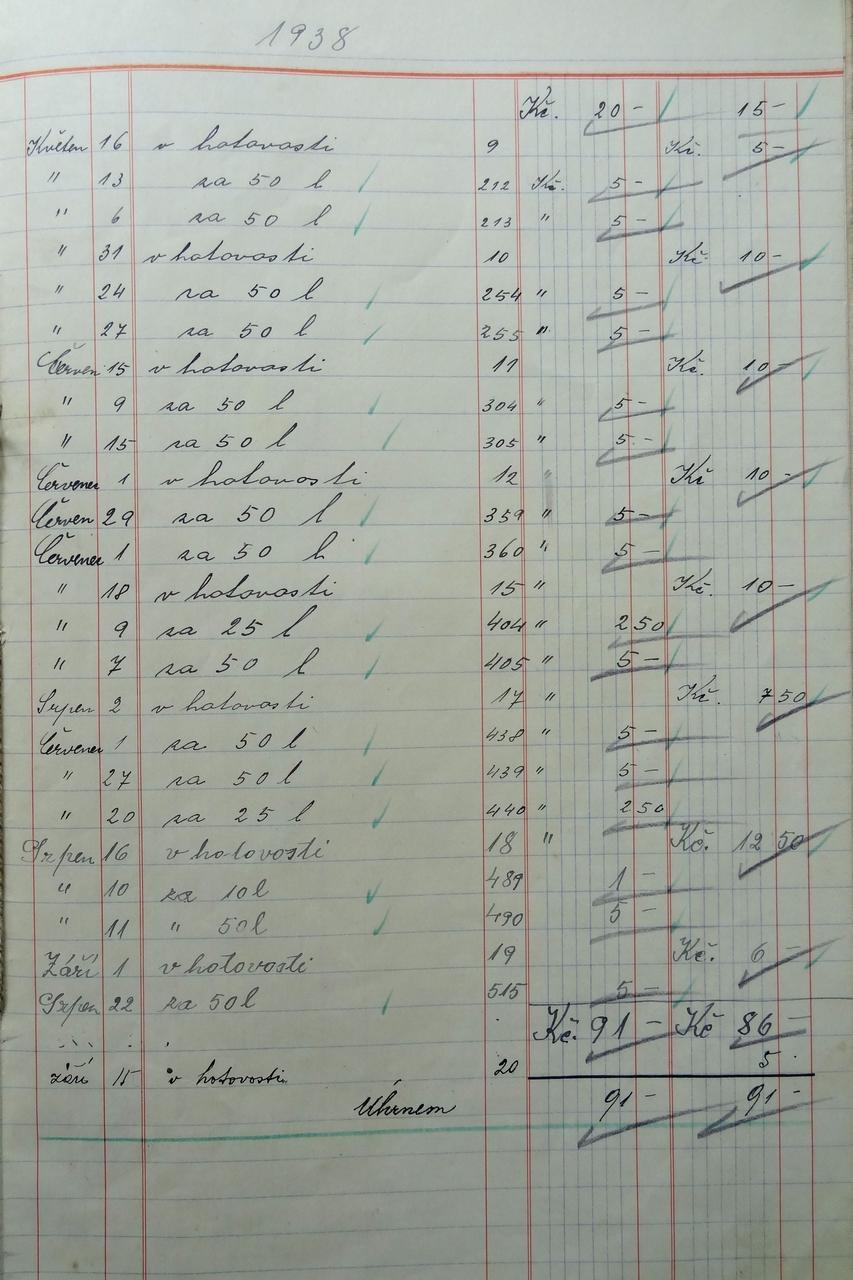 1938
Kč. 20 - 15 -
Květen 16 v hotovosti 9 Kč. 5 -
" 13 za 50 l 212 Kč. 5 -
" 6 za 50 l 213 " 5 -
" 31 v hotovosti 10 Kč. 10 -
" 24 za 50 l 254 " 5 -
" 27 za 50 l 255 " 5 -
Červen 15 v hotovosti 11 Kč. 10 -
" 9 za 50 l 304 " 5 -
" 15 za 50 l 305 " 5 -
Červenec 1 v hotovosti 12 " Kč 10 -
Červen 29 za 50 l 359 " 5 -
Červenec 1 za 50 l 360 " 5 -
" 18 v hotovosti 15 " Kč. 10 -
" 9 za 25 l 404 " 2 50
" 7 za 50 l 405 " 5 -
Srpen 2 v hotovosti 17 " Kč. 7 50
Červenec 1 za 50 l 438 " 5 -
" 27 za 50 l 439 " 5 -
" 20 za 25 l 440 " 2 50
Srpen 16 v hotovosti 18 " Kč. 12 50
" 10 za 10 l 489 1 -
" 11 " 50 l 490 5 -
Září 1 v hotovosti 19 Kč. 6 -
Srpen 22 za 50 l 515 5 -
Kč. 91 - Kč 86 -
Září 15 v hotovosti 20 5
Úhrnem 91 - 91 -